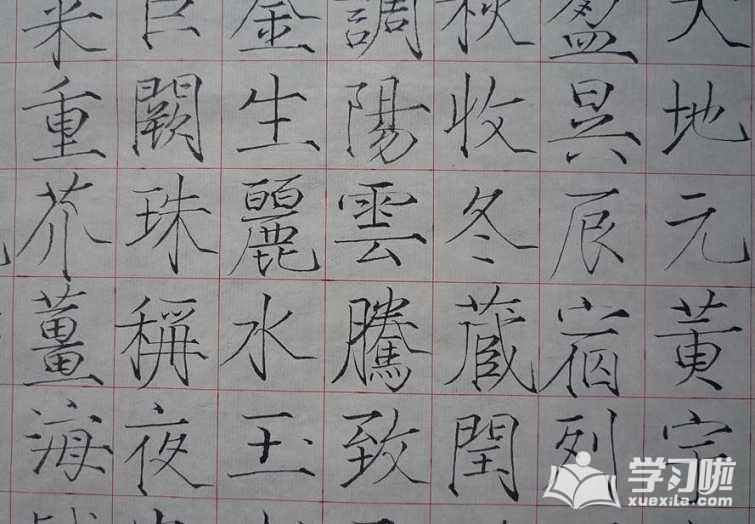 天地元黄宇
盈昃辰宿列
秋收冬蔵閏
調陽雲騰致
金生麗水玉
巨闕珠稱夜
菜重芥薑海
学习啦
xuexila.com